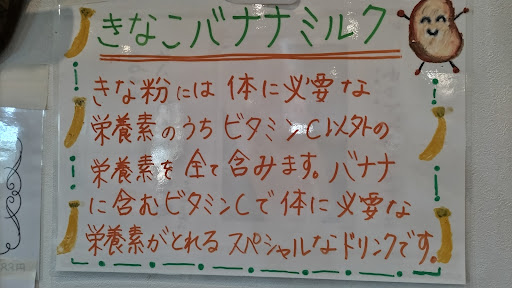 きなこバナナミルク
きな粉には体に必要な
栄養素のうちビタミンC以外の
栄養素を全て含みます。バナナ
に含むビタミンCで体に必要な
栄養素がとれるスペシャルなドリンクです。